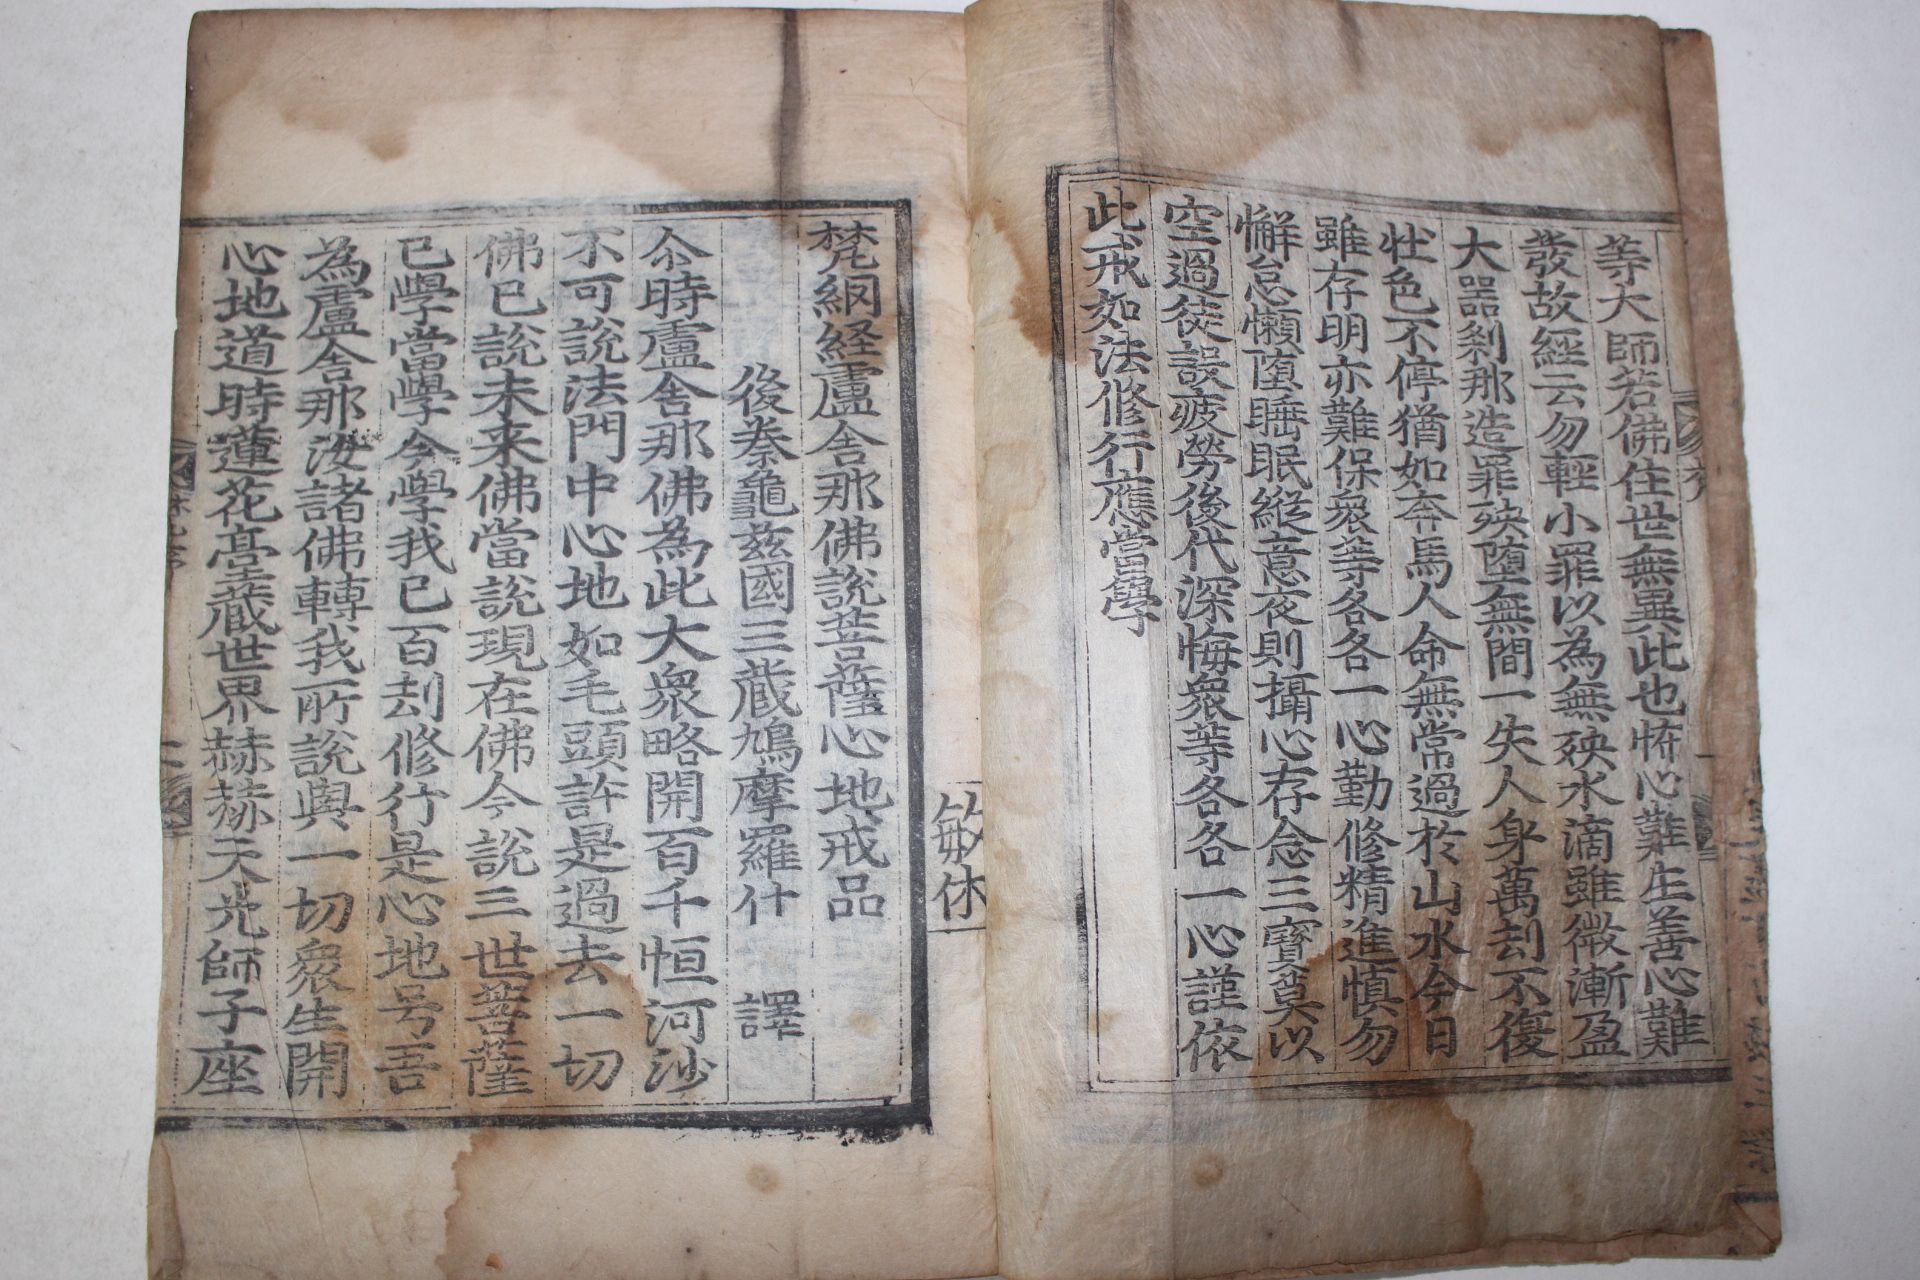 等大師若佛住世無異此也怖心難生善心難
發故經云勿輕小罪以為無殃水滴雖微漸盈
大器刹那造罪殃墮無間一失人身萬刦不復
壮色不停猶如奔馬人命無常過於山水今日
雖存明亦難保衆等各各一心勤修精進慎勿
懈怠懶墮睡眠縱意夜則攝心存念三寶莫以
空過徒設疲勞後代深悔衆等各各一心謹依
此戒如法修行應當學
敏休
梵網経盧舍那佛說菩薩心地戒品
後拳龜兹國三蔵鳩摩羅什 譯
尒時盧舍那佛為此大衆略開百千恒河沙
不可說法門中心地如毛頭許是過去一切
佛已說未来佛當說現在佛今說三世菩薩
已學當學今學我已百刦修行是心地号吾
為盧舍那汝諸佛轉我所說與一切衆生開
心地道時蓮花䑓蔵世界赫赫天光師子座